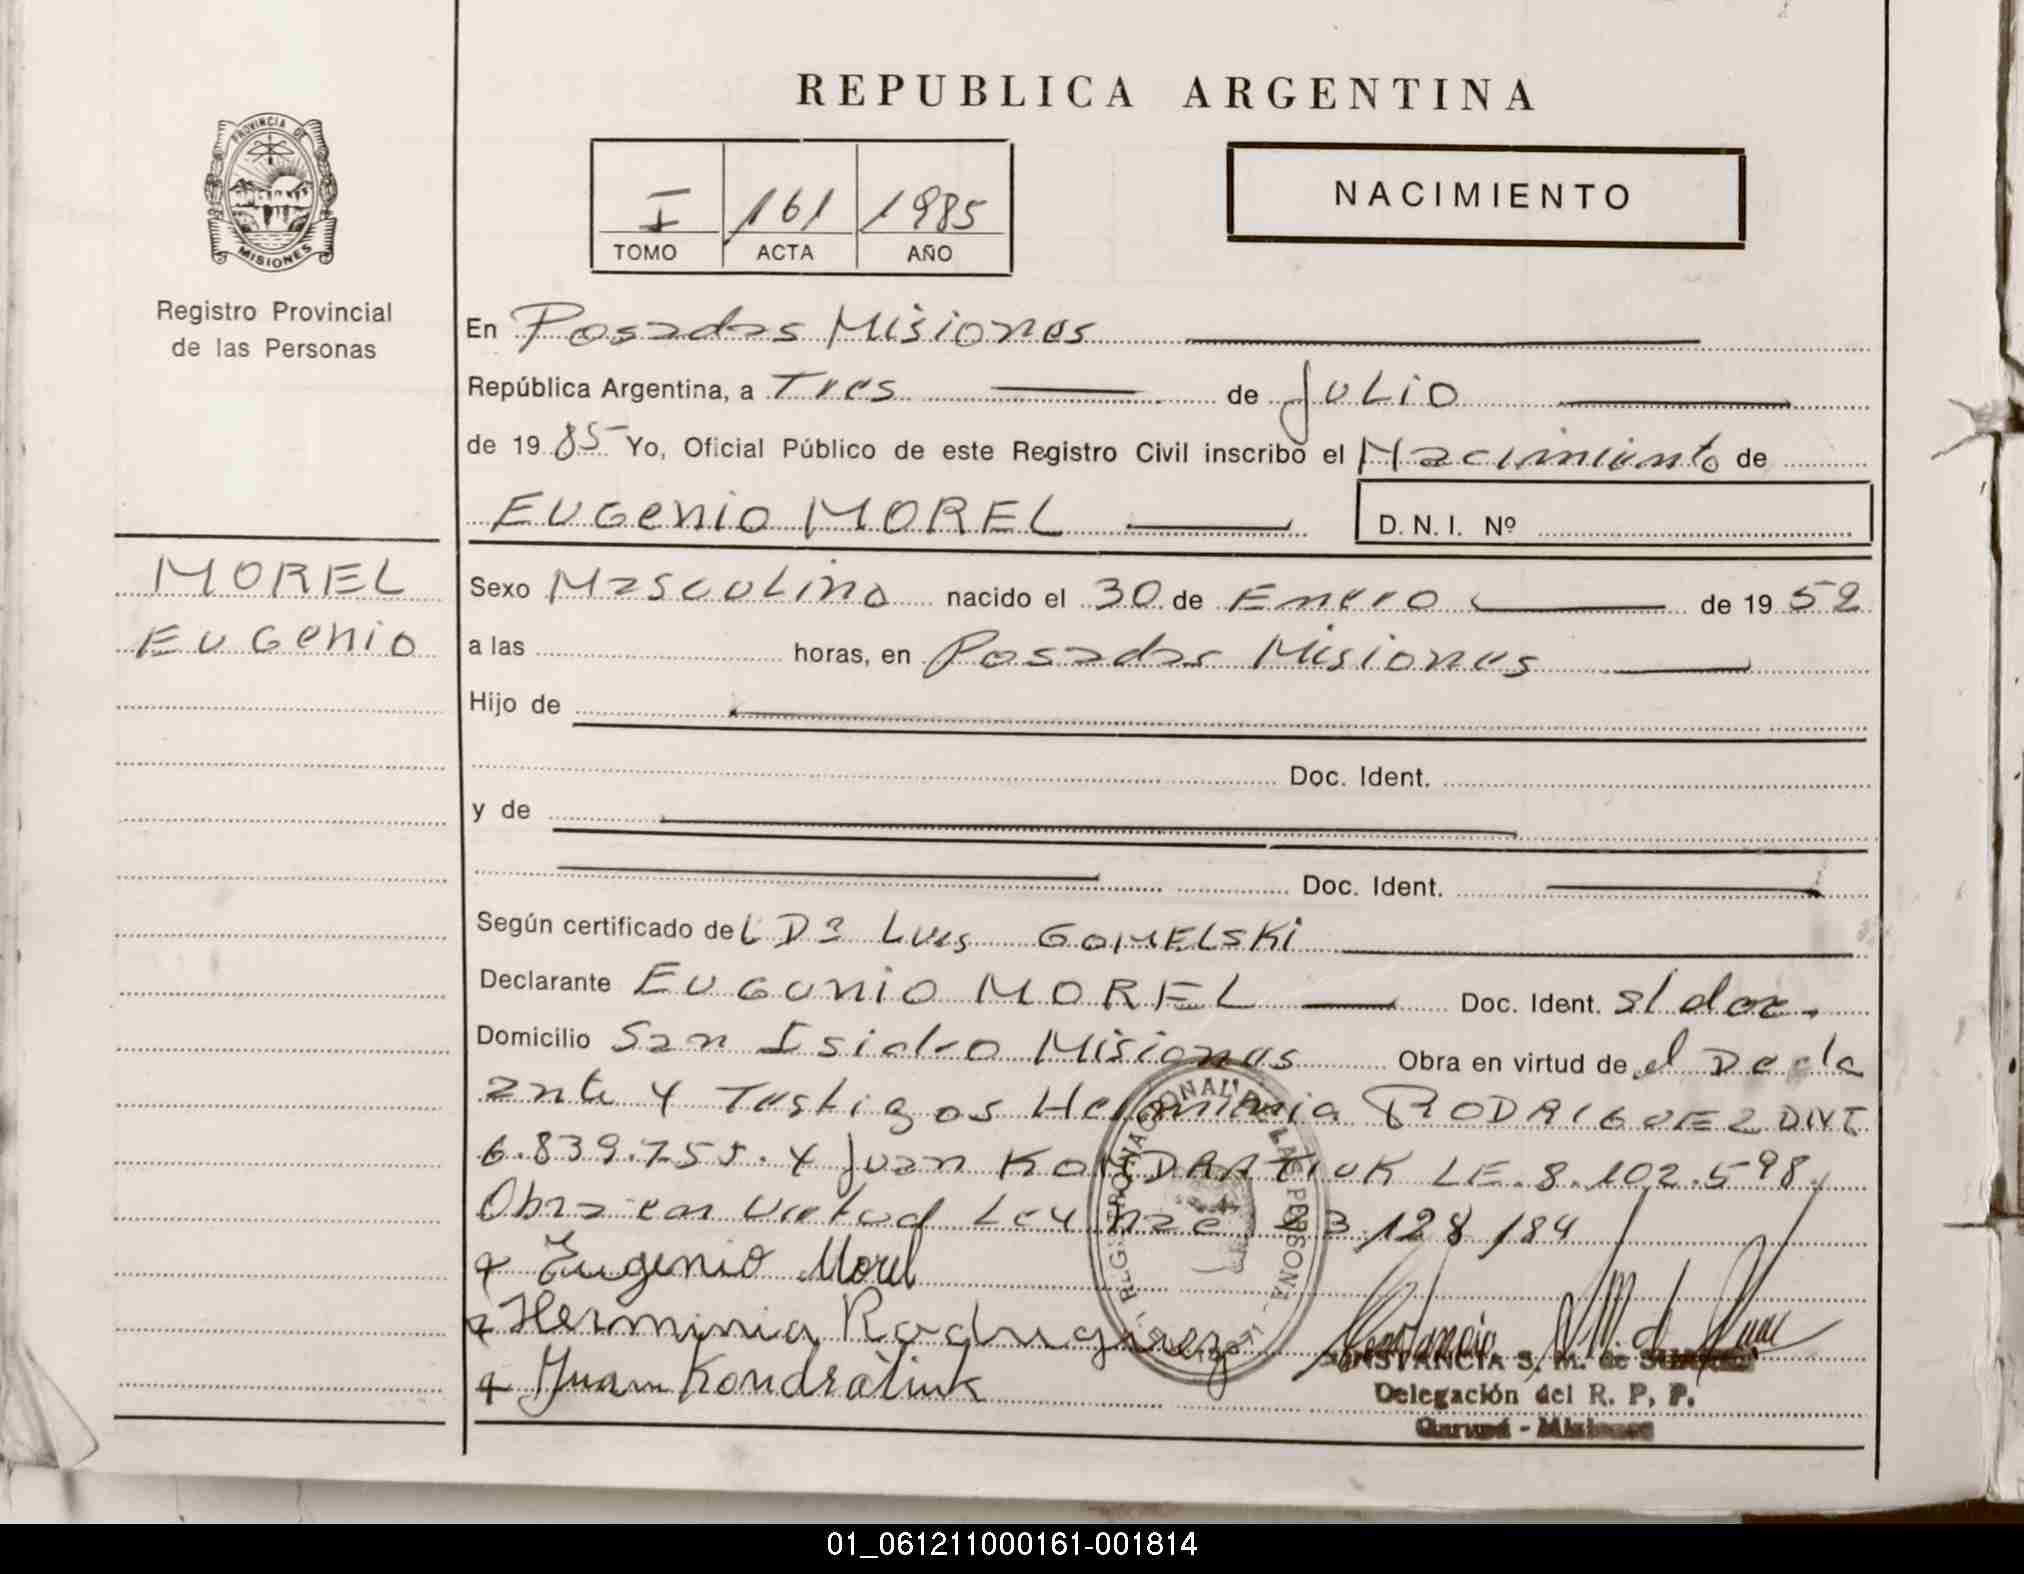 REPUBLICA ARGENTINA
PROVINCIA DE
MISIONES
Registro Provincial
de las Personas
I 161 1985
TOMO ACTA AÑO
NACIMIENTO
En Posadas Misiones
República Argentina, a Tres de Julio
de 1985 Yo, Oficial Público de este Registro Civil inscribo el Nacimiento de
EUGenio MOREL D.N.I. Nº
MOREL
EUGenio
Sexo Masculino nacido el 30 de Enero de 1952
a las horas, en Posadas Misiones
Hijo de
Doc. Ident.
y de
Doc. Ident.
Según certificado del Luis GOMELSKi
Declarante EUGenio MOREL Doc. Ident. s/doc.
Domicilio San Isidro Misiones Obra en virtud de el Decla
ante y Testigos Herminia RODRIGUEZ DNI
6.839.755. y Juan KONDRATIUK LE.8.102.598.
Obra en virtud Ley 128/84
Eugenio Morel
Herminia Rodriguez
Juan Kondratiuk
CONSTANCIA S. M. de
Delegación del R. P. P.
Garupá - Misiones
01_061211000161-001814